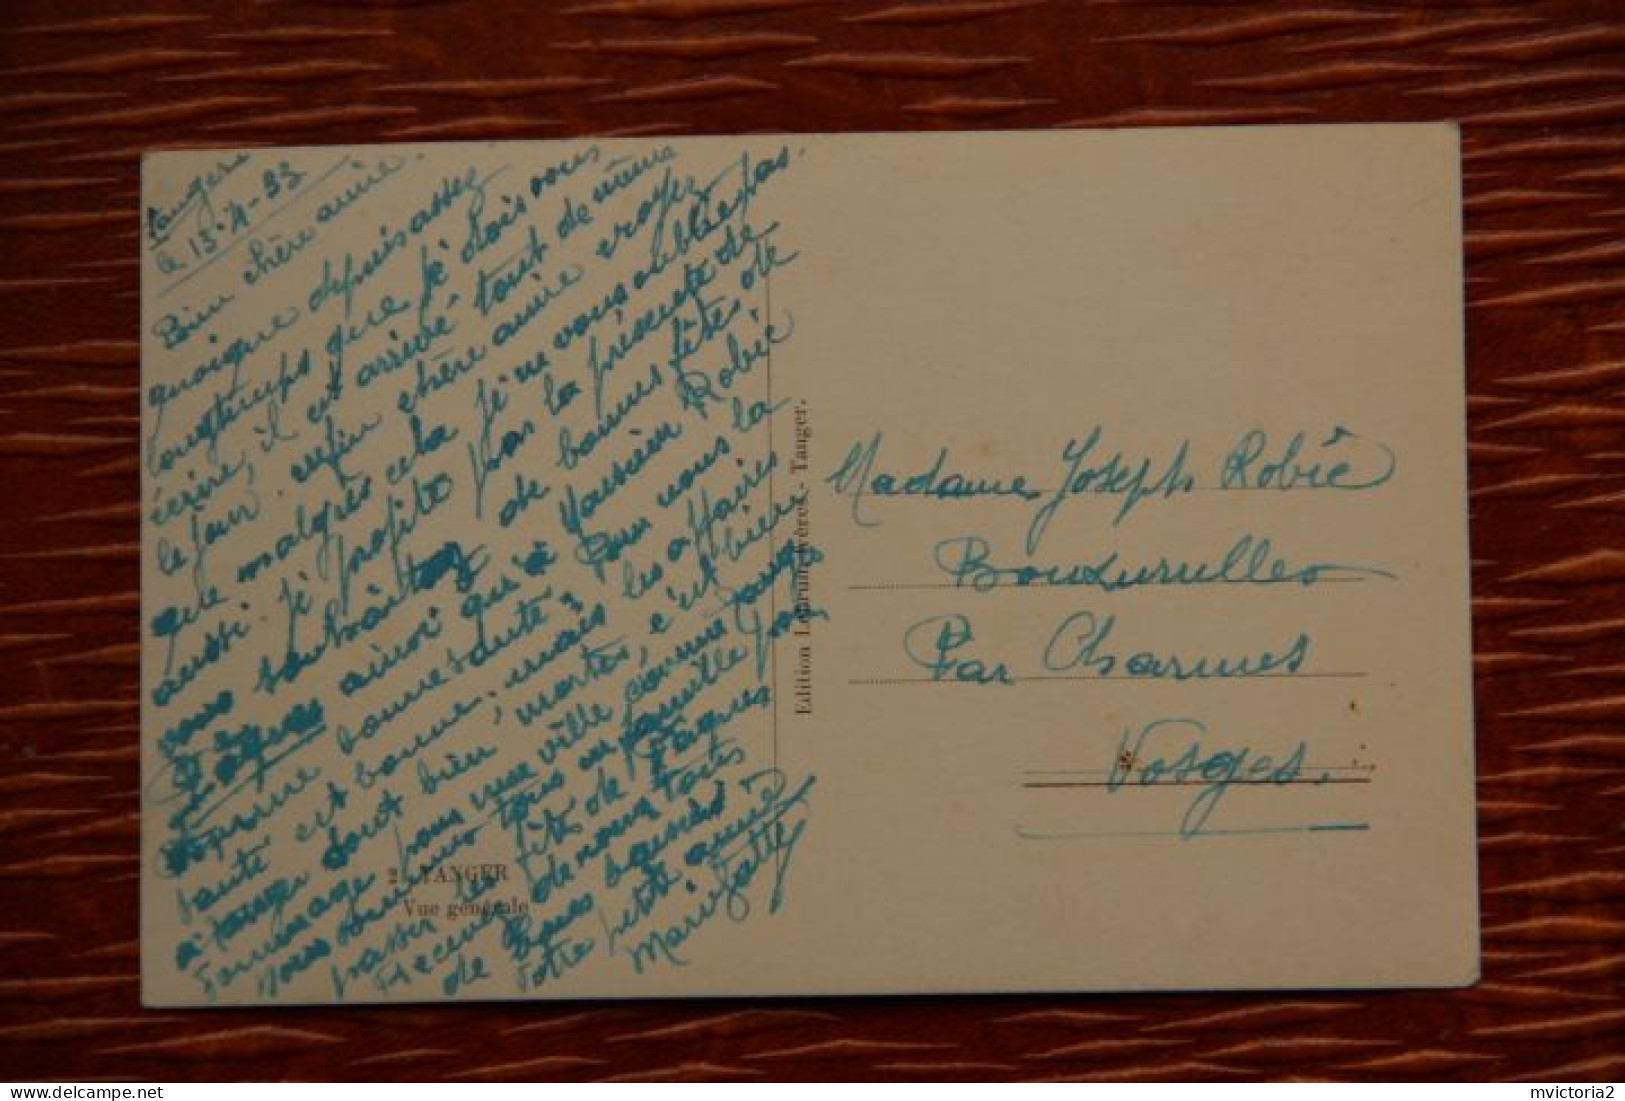 Tanger
le 13-4-33
Bien chère amie.
quoique depuis assez
longtemps que je dois vous
écrire, il est arrivé tout de même
le jour. enfin chère amie croyez
que malgrés cela je ne vous oublie pas.
aussi je profite par la présente de
vous souhaitez de bonnes fêtes de
Pâques ainsi qu'à Monsieur Robié
bonne santé. Pour nous la
santé est bonne, mais les affaires
à Tanger sont bien mortes, c'est bien
dommage pour une ville comme
Nous sommes tous en famille pour
passer les fêtes de Pâques
Recevez de nous tous
de bons baisers
Votre petite amie
2. TANGER
Vue générale
Edition Lebrun Frères. - Tanger.
Madame Joseph Robié
Bouxurulles
Par Charmes
Vosges.
mvictoria2